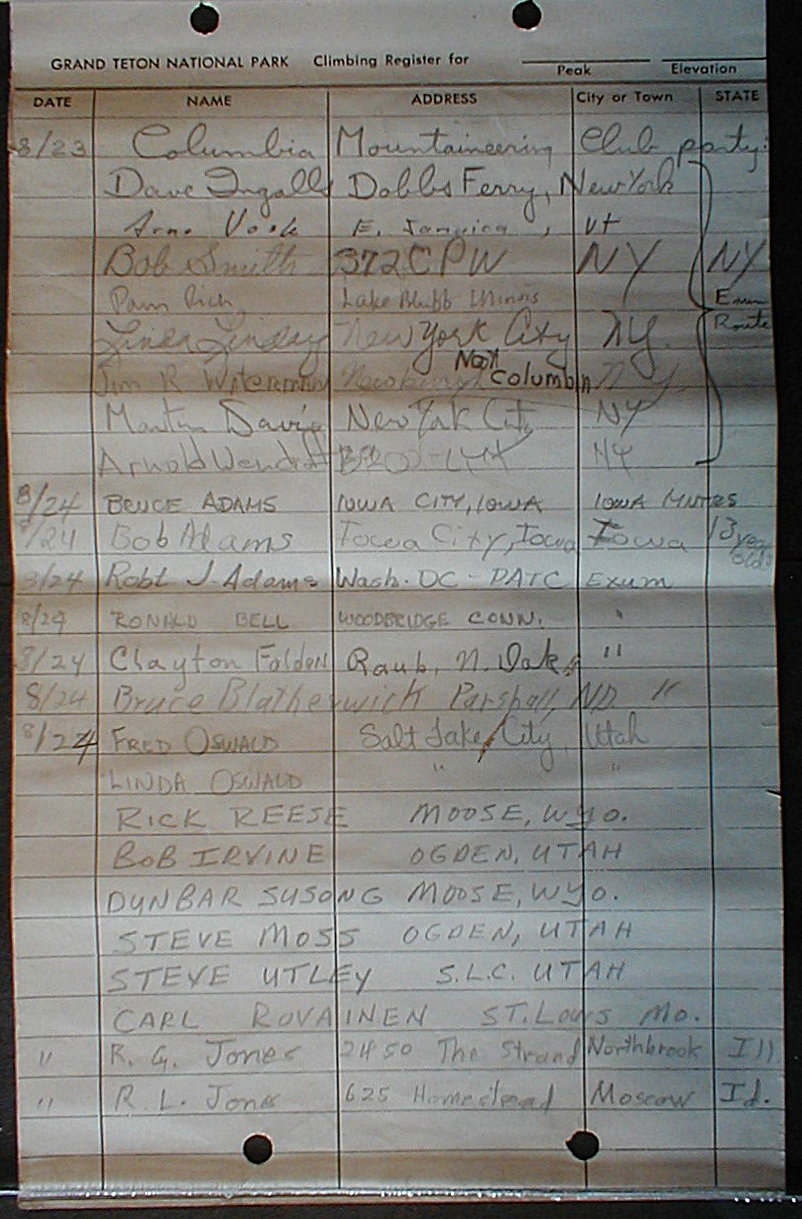 GRAND TETON NATIONAL PARK Climbing Register for
Peak Elevation
DATE NAME ADDRESS City or Town STATE
8/23 Columbia Mountaineering Club party:
Dave Ingalls Dobbs Ferry, New York
E. Jamaica, Vt
Bob Smith 372 CPW NY NY
Pam Rich Lake Bluff Illinois Exum
Linda Lindsay New York City NY. Route
Jim R Newburgh Not Columbia NY
Martin Davis New York City NY
Arnold NY
8/24 BRUCE ADAMS IOWA CITY, IOWA IOWA MNTRS
8/24 Bob Adams Iowa City, Iowa Iowa 13 years old
8/24 Robt J. Adams Wash. DC - PATC Exum
8/24 RONALD BELL WOODBRIDGE CONN. "
8/24 Clayton Folden Raub, N. Dak "
8/24 Bruce Blatherwick Parshall, ND. "
8/24 FRED OSWALD Salt Lake City, Utah
LINDA OSWALD " "
RICK REESE MOOSE, WYO.
BOB IRVINE OGDEN, UTAH
DUNBAR SUSONG MOOSE, WYO.
STEVE MOSS OGDEN, UTAH
STEVE UTLEY S.L.C. UTAH
CARL ROVAINEN ST. LOUIS MO.
" R. G. Jones 2450 The Strand Northbrook Ill
" R. L. Jones 625 Homestead Moscow Id.